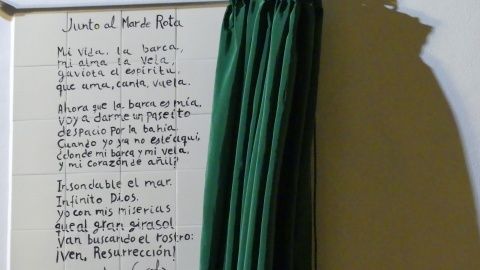 Junto al Mar de Rota
Mi vida, la barca,
mi alma la vela,
gaviota el espíritu,
que ama, canta, vuela.
Ahora que la barca es mía,
voy a darme un paseíto
despacio por la bahía.
Cuando yo ya no esté aquí,
¿dónde mi barca y mi vela,
y mi corazón de añil?
Insondable el mar.
Infinito Dios.
yo con mis miserias
que al gran girasol
van buscando el rostro:
¡Ven, Resurrección!